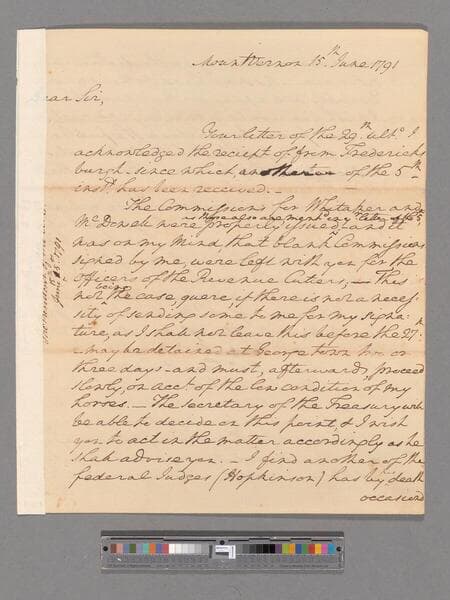 Mount Vernon 15th June 1791
Dear Sir,
Your letter of the 29th ulto I
acknowledged the receipt of from Fredericks
burgh. since which, another of the 5th
instt has been received. –
The Commissions for Whitaker and
as those also are mentd in yr letter of the 5th
McDowell were properly issued, and it
was on my mind, that blank Commissions
signed by me, were left with you for the
Officers of the Revenue Cutters, – This
not being the case, quere, if there is not a neces-
sity of sending some to me for my signa-
ture, as I shall not leave this before the 27th
– may be detained at George town two or
three days – and must, afterwards, proceed
slowly, on acct of the low condition of my
horses. – The Secretary of the Treasury will
be able to decide on this point, & I wish
you to act in the matter accordingly as he
shall advise you. – I find another of the
federal Judges (Hopkinson) has by his death
occasiond
June 15th 1791